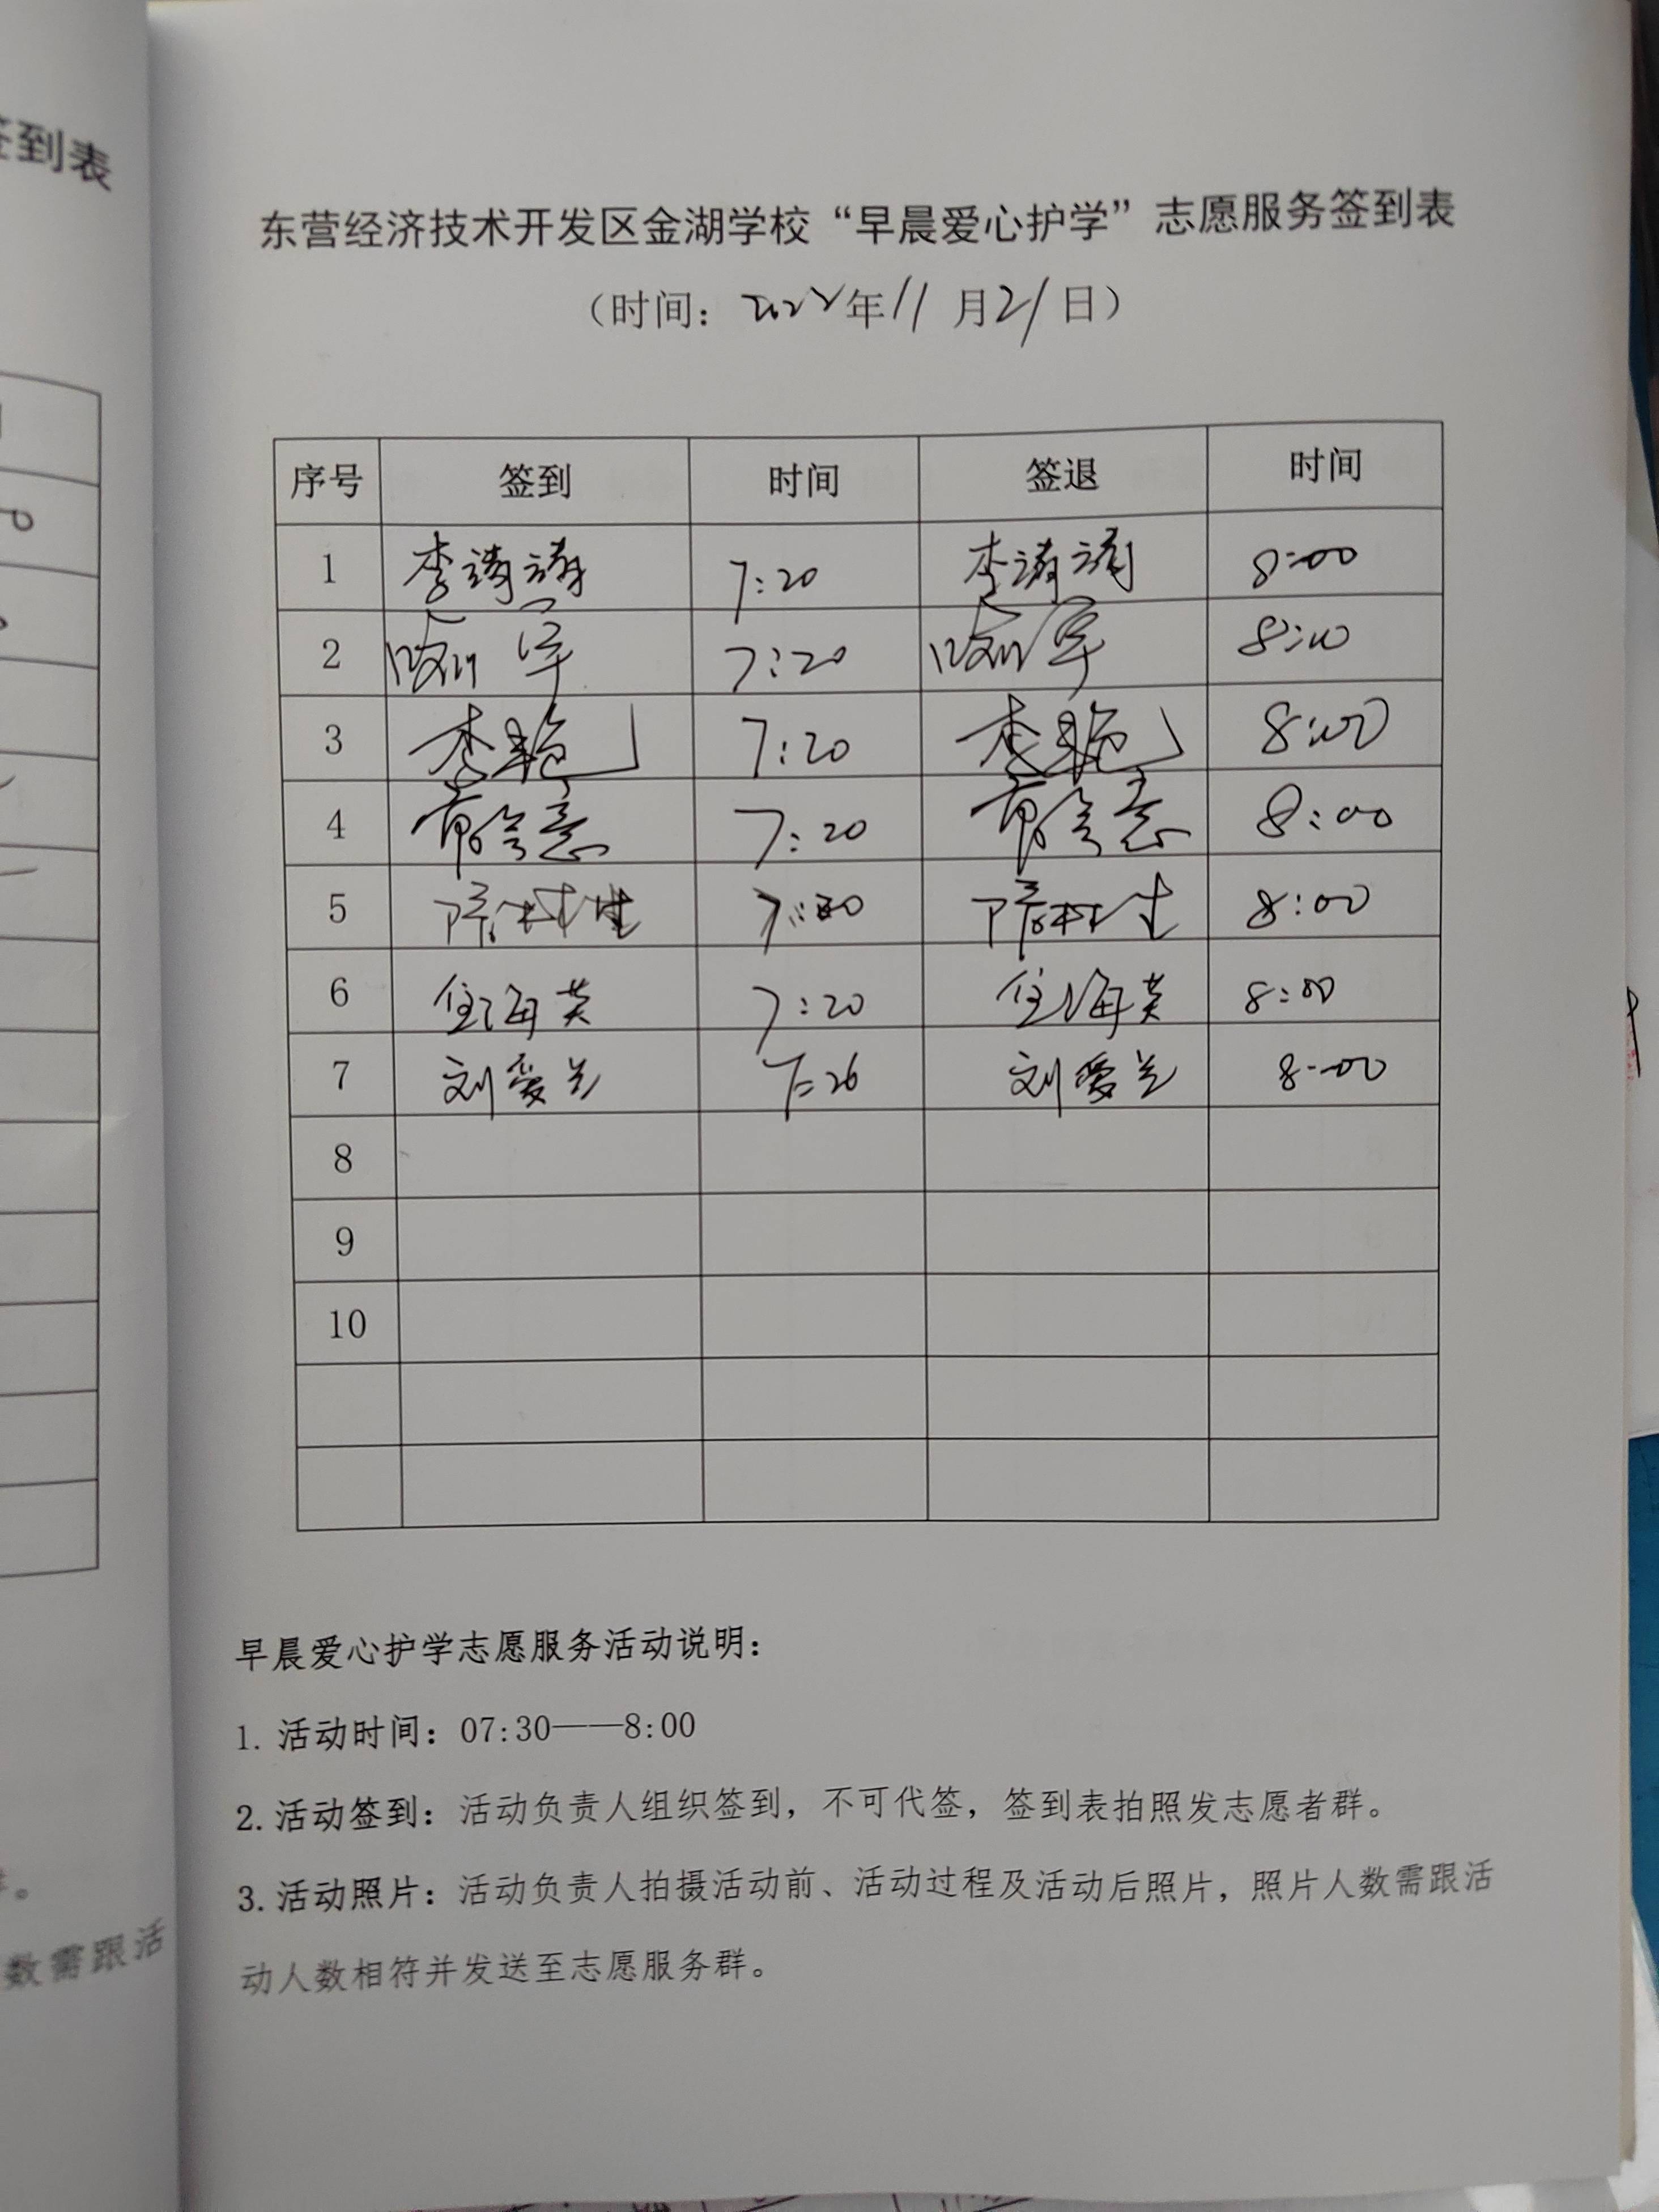 签到表
东营经济技术开发区金湖学校“早晨爱心护学”志愿服务签到表
（时间：2022年11月21日）
序号 签到 时间 签退 时间
1 李 7:20 李 8:00
2 7:20 8:00
3 李艳 7:20 李艳 8:00
4 7:20 8:00
5 生 7:20 生 8:00
6 任海英 7:20 任海英 8:00
7 刘爱兰 7:20 刘爱兰 8:00
8
9
10
早晨爱心护学志愿服务活动说明：
1. 活动时间：07:30——8:00
2. 活动签到：活动负责人组织签到，不可代签，签到表拍照发志愿者群。
3. 活动照片：活动负责人拍摄活动前、活动过程及活动后照片，照片人数需跟活
动人数相符并发送至志愿服务群。
数需跟活